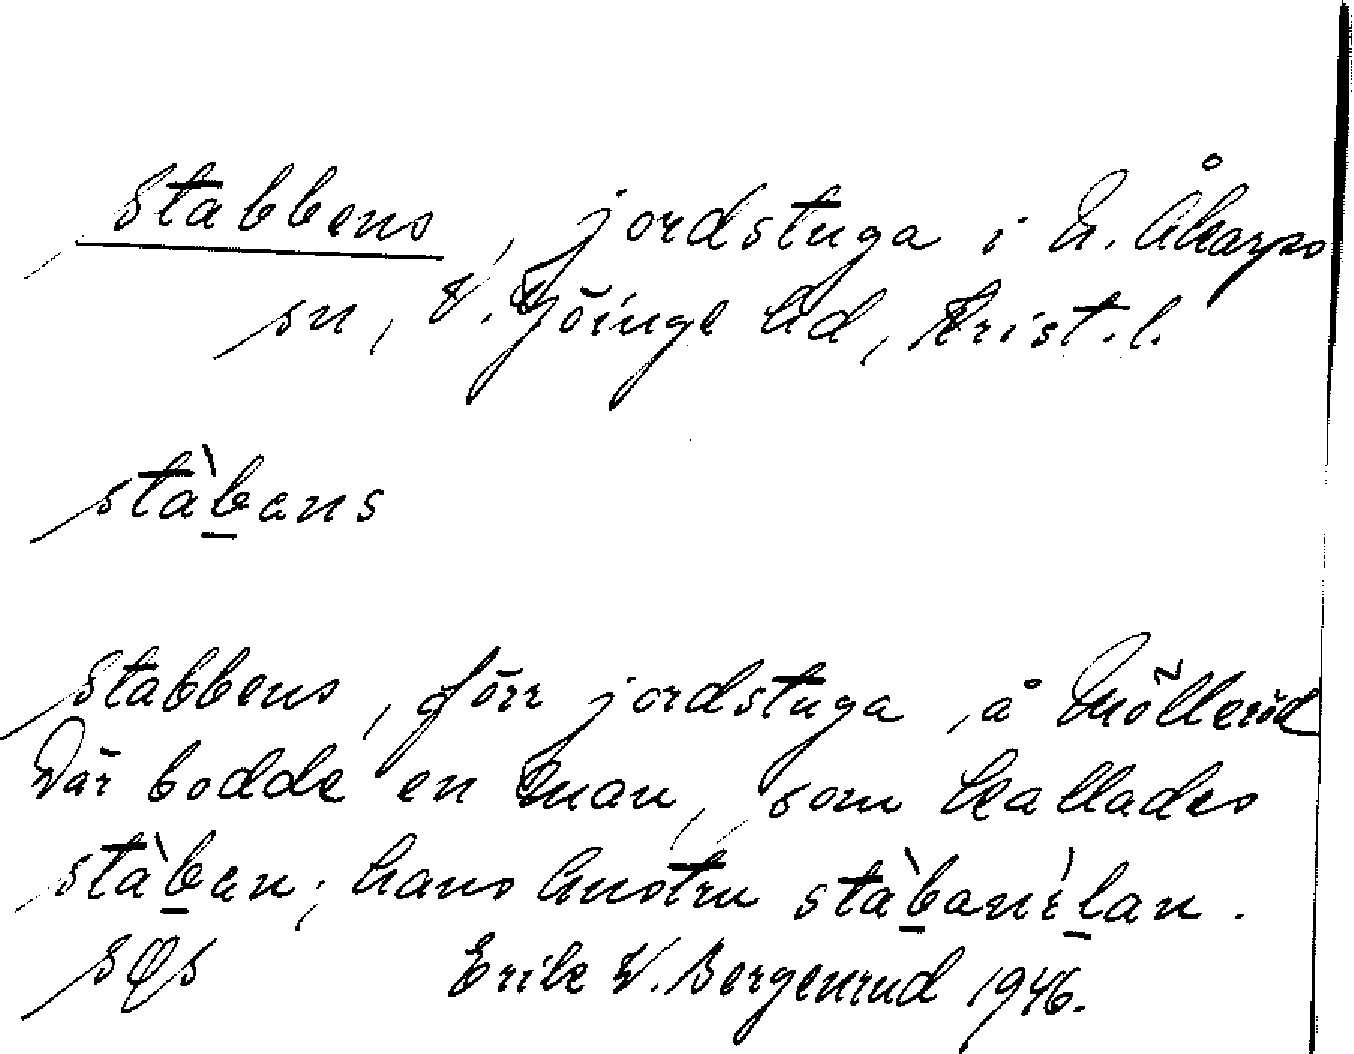 Stabbens, jordstuga i N. Åkarps
sn, V. Göinge hd, Krist. l.
stàbans
Stabbens, förr jordstuga, å Mölleröd
Där bodde en man, som kallades
stàban; hans hustru stàbanèlan.
sgs Erik W. Bergenrud 1946.